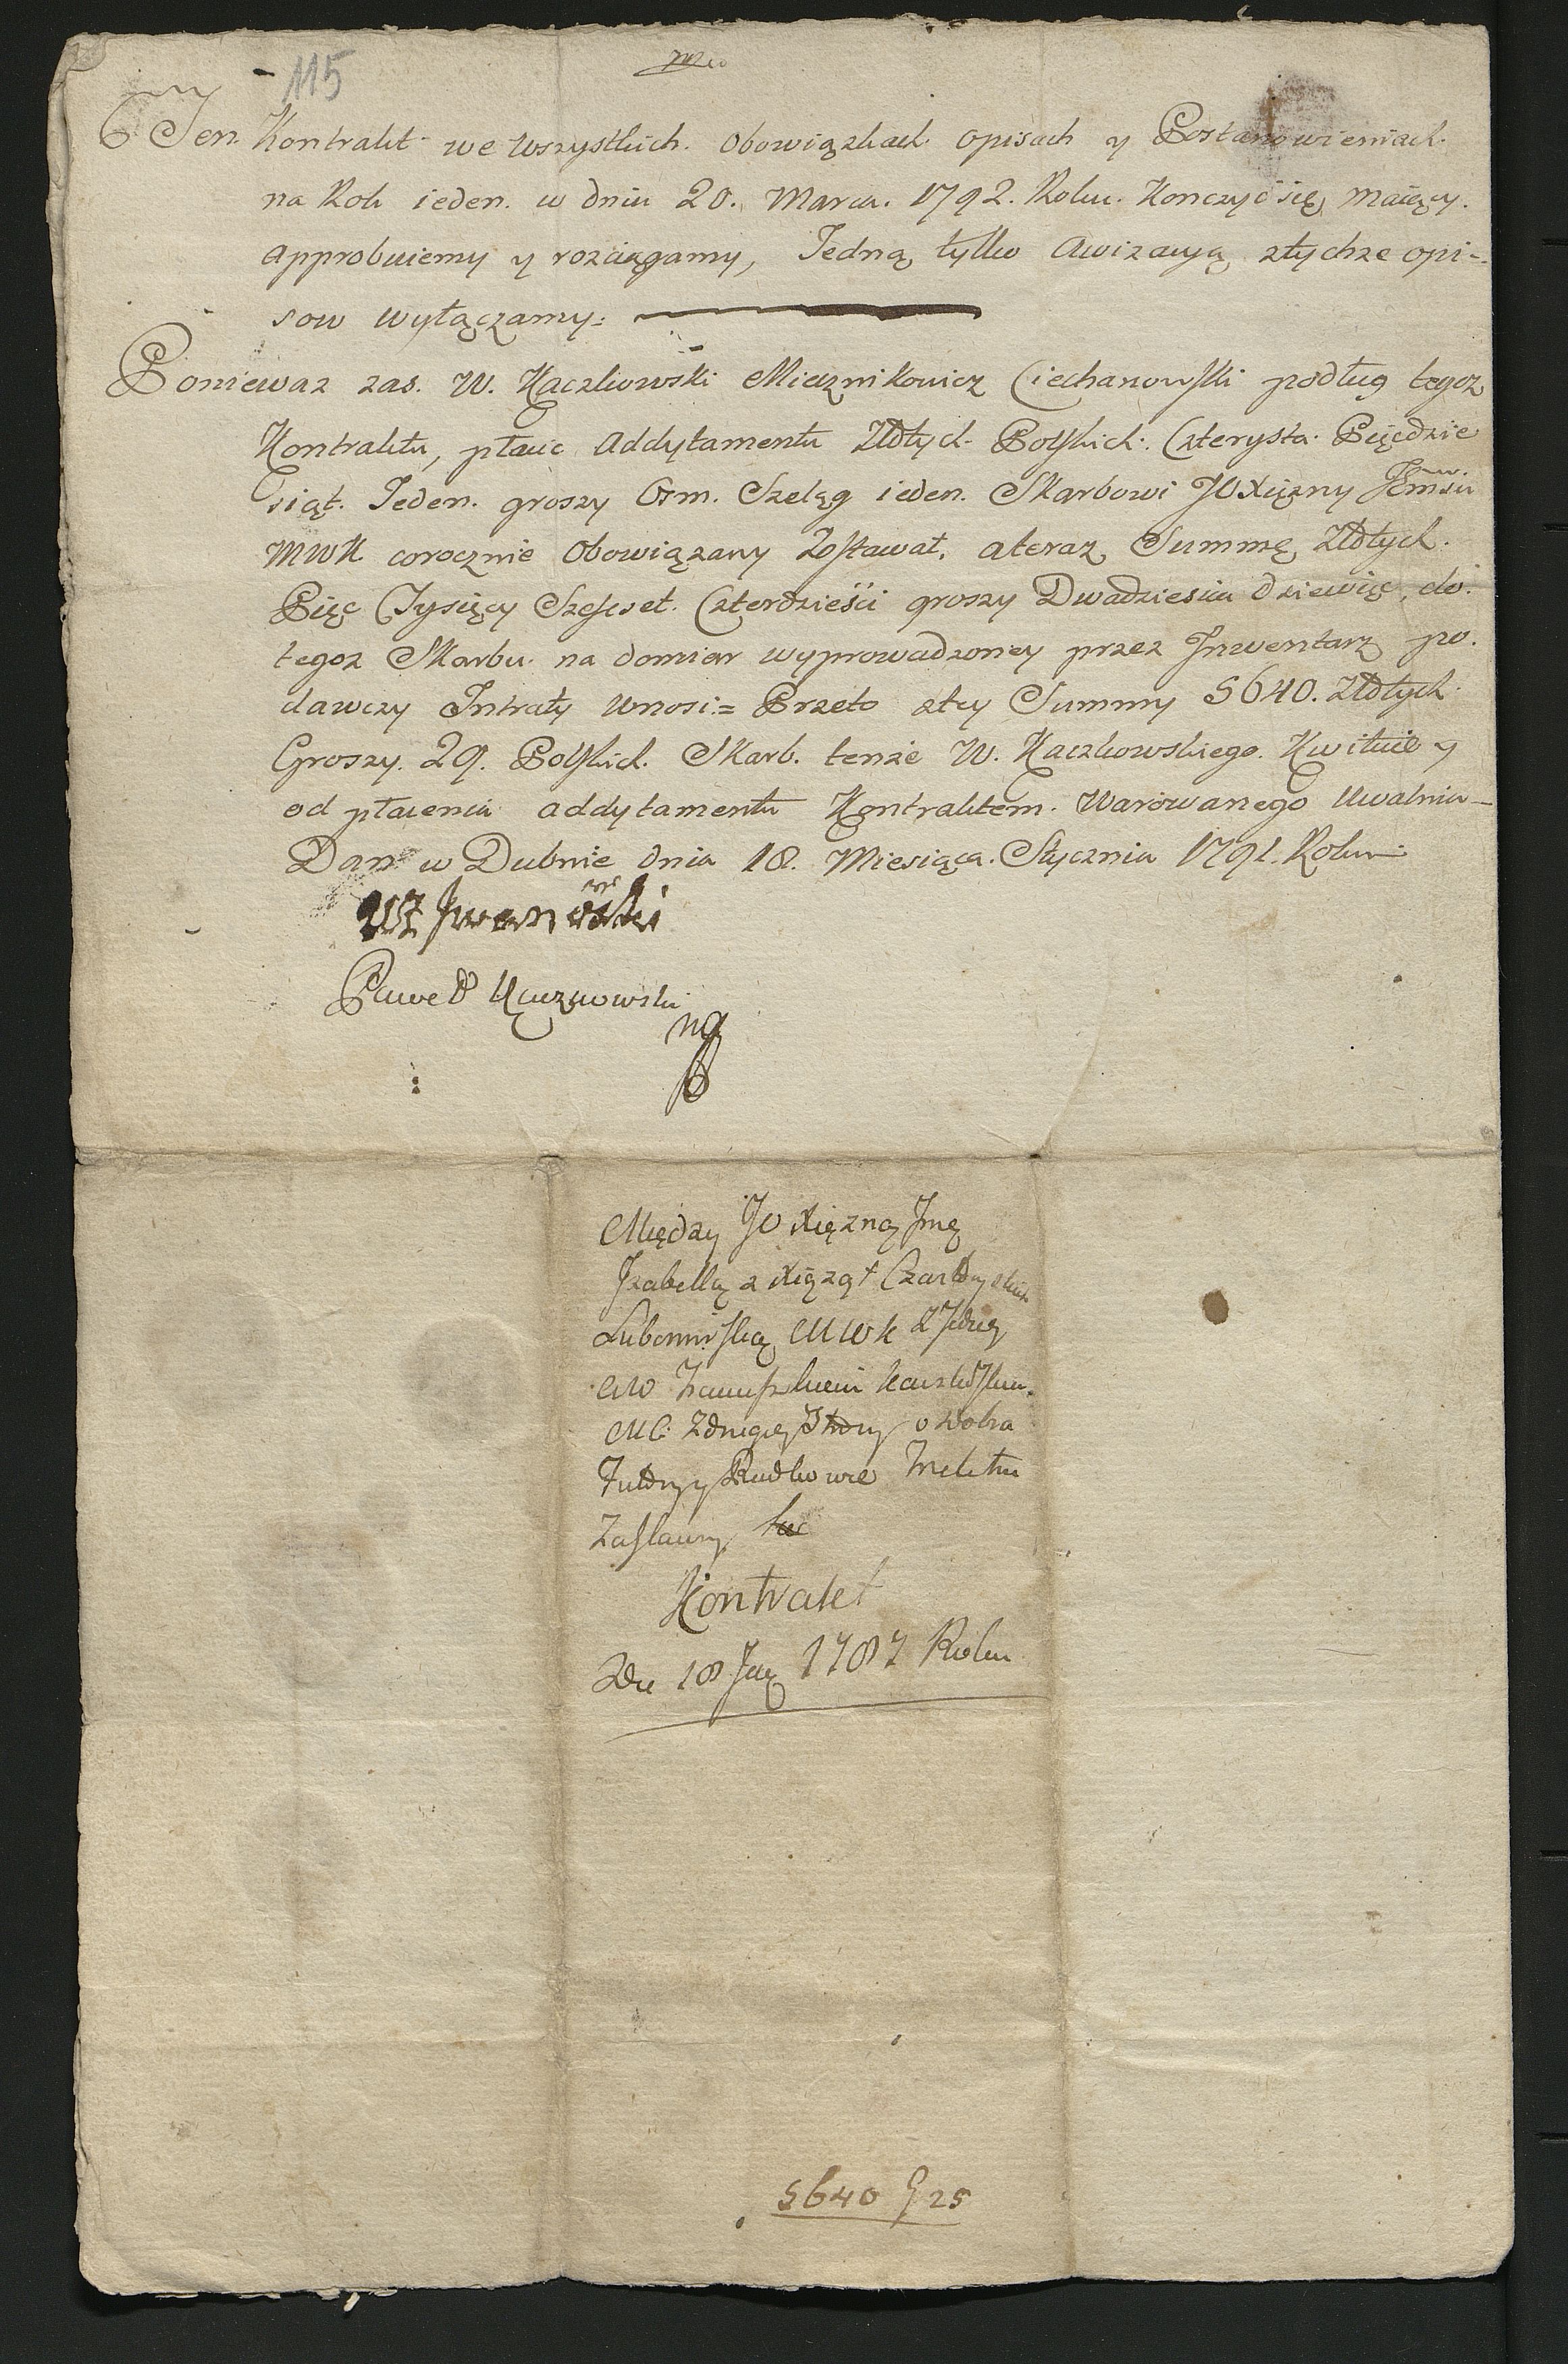 115
Ten Kontrakt we wszystkich obowiązkach opisach y Postanowieniach
na Rok ieden. w dniu 20. Marca. 1792. Roku. Konczyć się maiący.
approbuiemy y rozciągamy, Jedną tylko Awizacyą ztychże opi=
sow wyłączamy:
Poniewaz zas. W. Kaczkowski Miecznikowicz Ciechanowski podług tegoz
Kontraktu, płacic Addytamentu Złotych Polskich. Czterysta. Pięędzie
siąt. Jeden. groszy Osm. Szeląg ieden. Skarbowi JOXiężny
MWK corocznie obowiązany Zostawał, a teraz Summę Złotych.
Pięc Tysięcy Szeset. Czterdzieści groszy Dwadziescia dziewięc, do
tegoz Skarbu. na domiar wyprowadzoney przez Inwentarz po.
dawczy Intraty wnosi = Przeto ztey Summy 5640. Złotych
Groszy. 29. Polskich. Skarb. tenże W. Kaczkowskiego. Kwituie y
od płacenia addytamentu Kontraktem. Warowanego Uwalnia
Dan w Dubnie dnia 18. Miesiąca. Stycznia 1791. Roku
Iwanowski
Paweł Kaczkowski
Między JO Xiężną Jmę
Izabellą z Xiążąt Czartoryskich
Lubomirską MWK z Jedney
Kaczkowskim
MC. Zdrugiey Strony o Dobra
y Rudkowie
Zasławy
Kontrakt
Die 18 1787 Roku
5640 g 25